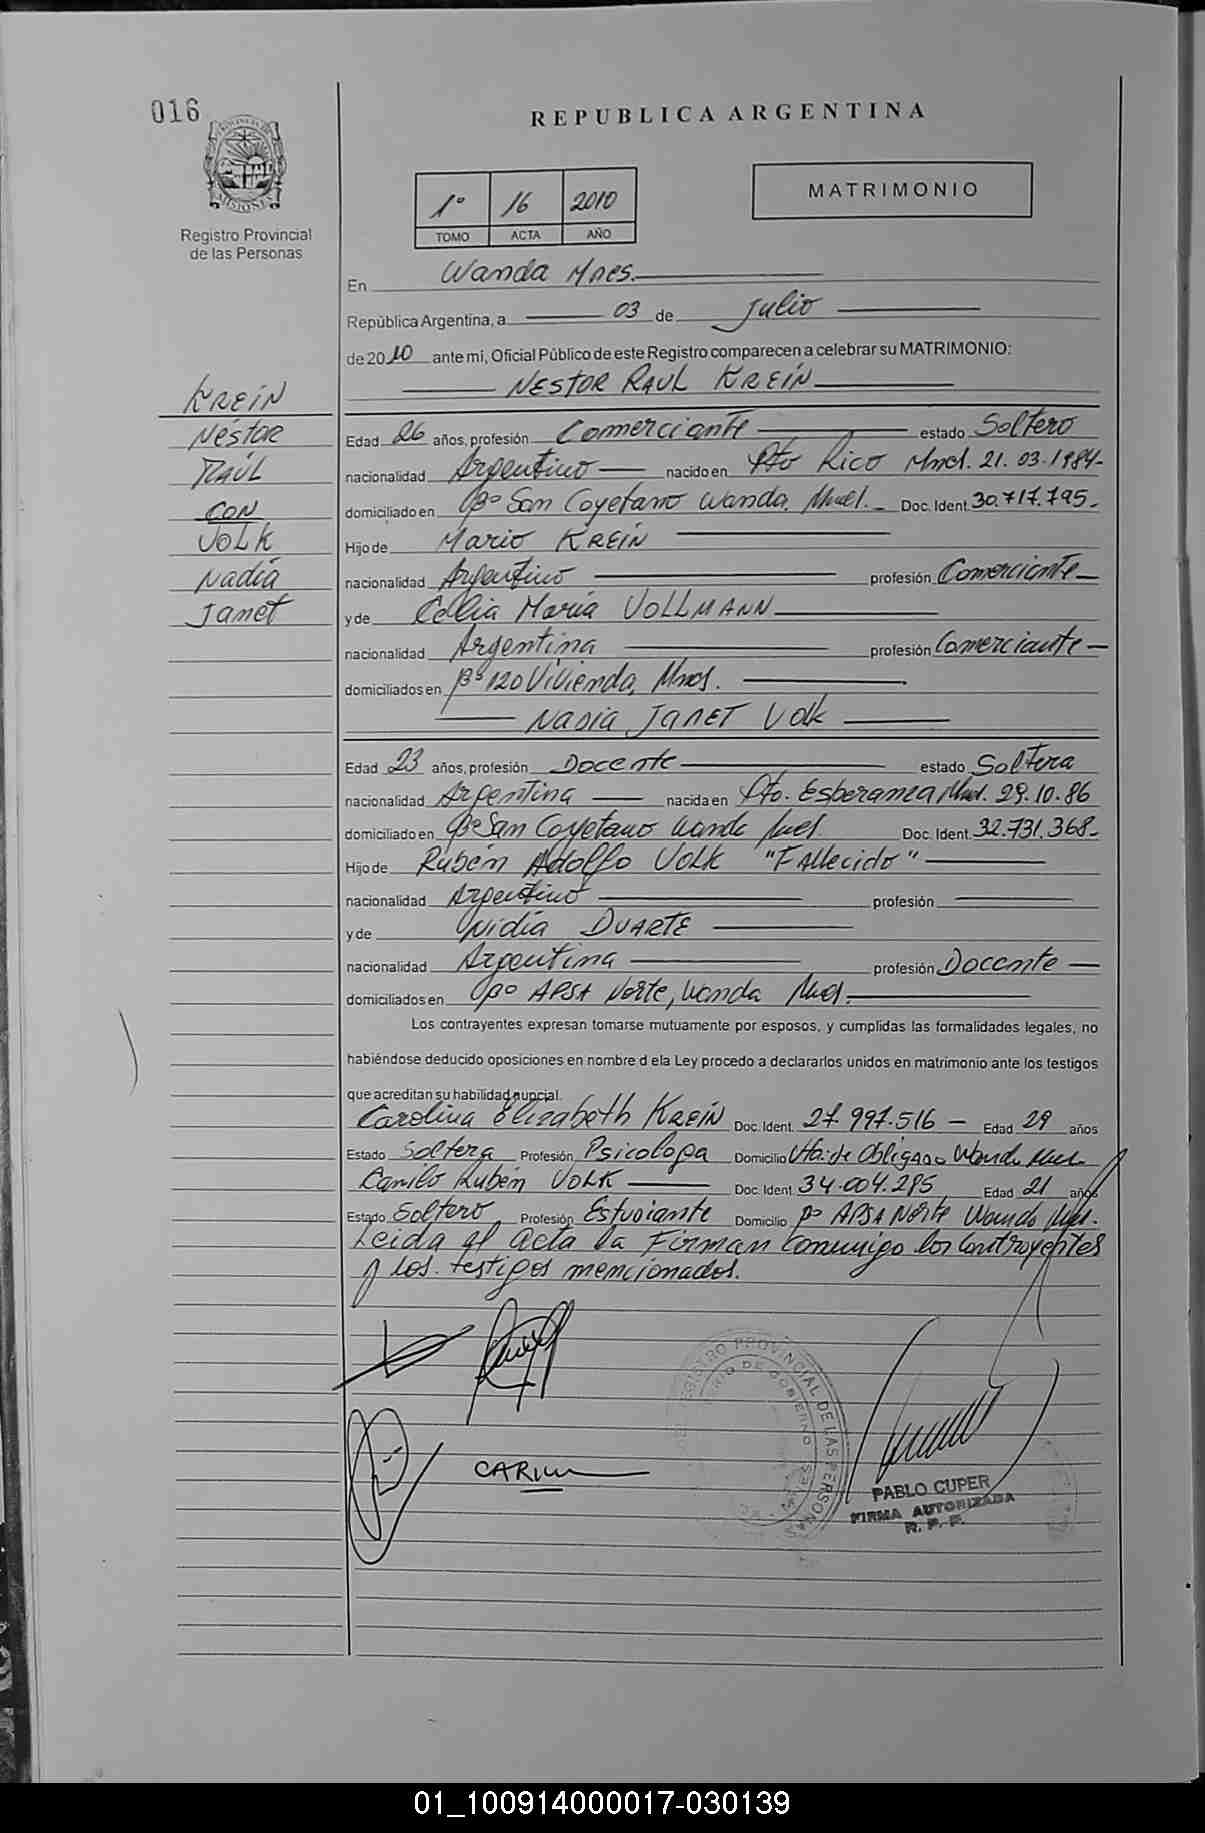 016
REPUBLICA ARGENTINA
PROVINCIA DE MISIONES
Registro Provincial
de las Personas
1º 16 2010
TOMO ACTA AÑO
MATRIMONIO
En Wanda Mnes.
República Argentina, a 03 de Julio
de 2010 ante mi, Oficial Público de este Registro comparecen a celebrar su MATRIMONIO:
NESTOR RAUL KREIN
KREIN
Néstor
RAÚL
CON
VOLK
Nadia
Janet
Edad 26 años, profesión Comerciante estado Soltero
nacionalidad Argentino nacido en Pto Rico Mnes. 21.03.1984-
domiciliado en Bº San Cayetano Wanda, Mnes. Doc. Ident. 30.717.795-
Hijo de Mario KREIN
nacionalidad Argentino profesión Comerciante
y de Celia María VOLLMANN
nacionalidad Argentina profesión Comerciante
domiciliados en Bº 120 Vivienda, Mnes.
Nadia JANET Volk
Edad 23 años, profesión Docente estado Soltera
nacionalidad Argentina nacida en Pto. Esperanza Mnes. 29.10.86
domiciliado en Bº San Cayetano Wanda Mnes. Doc. Ident. 32.731.368-
Hijo de Rubén Adolfo VOLK "Fallecido"
nacionalidad Argentino profesión
y de Nidia DUARTE
nacionalidad Argentina profesión Docente
domiciliados en Bº APSA Norte, Wanda Mnes.
Los contrayentes expresan tomarse mutuamente por esposos, y cumplidas las formalidades legales, no
habiéndose deducido oposiciones en nombre d ela Ley procedo a declararlos unidos en matrimonio ante los testigos
que acreditan su habilidad nupcial.
Carolina Elizabeth KREIN Doc. Ident. 27.997.516 - Edad 29 años
Estado Soltera Profesión Psicologa Domicilio Vta. de Obligado Wanda Mnes.
Camilo Rubén VOLK Doc. Ident. 34.004.295 Edad 21 años
Estado Soltero Profesión Estudiante Domicilio Bº APSA Norte Wanda Mnes.
Leida el acta la Firman conmigo los Contrayentes
y los testigos mencionados.
REGISTRO PROVINCIAL DE LAS PERSONAS
PABLO CUPER
FIRMA AUTORIZADA
R. P. P.
01_100914000017-030139